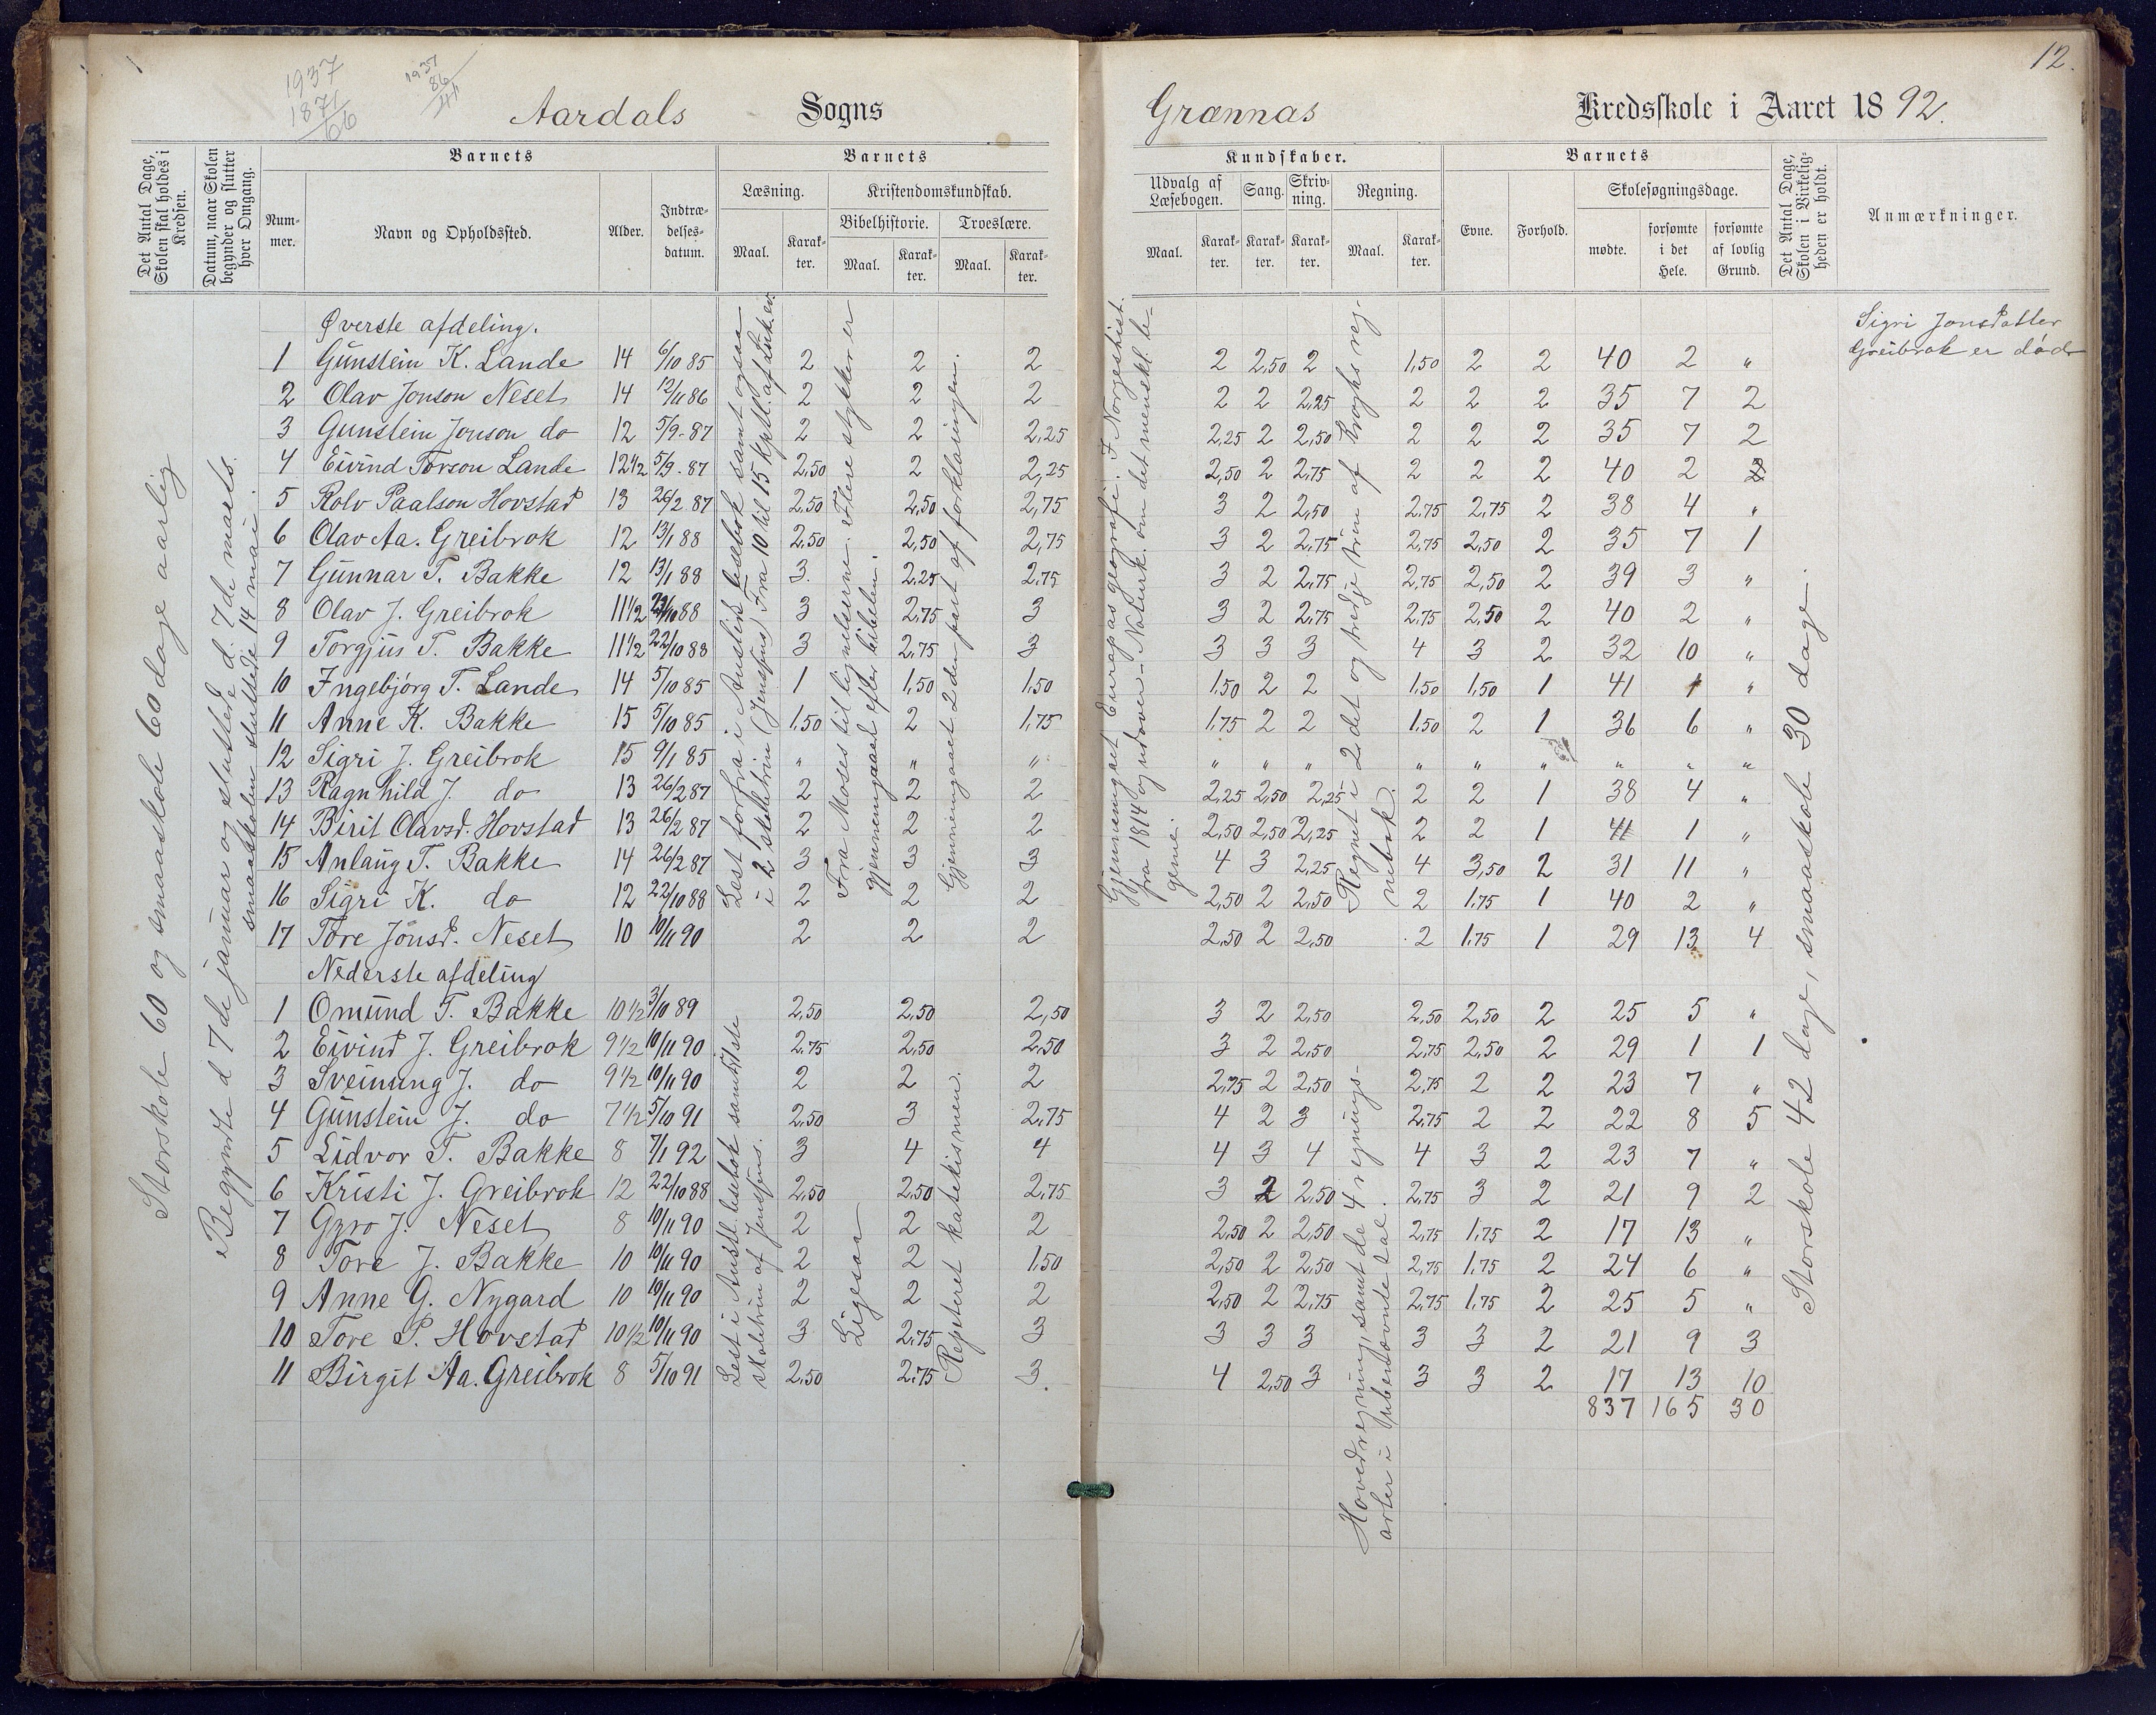 12.
1937
1871
66
1937
86
Aardals Sogns
Grannas Kredsskole i Aaret 1892.
Det Antal Dage, Skolen skal holdes i Kredsen.
Datum, naar Skolen begynder og slutter hver Omgang.
Barnets
Nummer.
Navn og Opholdssted.
Alder.
Indtrædelsesdatum.
Barnets
Læsning.
Maal.
Karakter.
Kristendomskundskab.
Bibelhistorie.
Maal.
Karakter.
Troeslære.
Maal.
Karakter.
Kundskaber.
Udvalg af Læsebogen.
Maal.
Karakter.
Sang.
Karakter.
Skrivning.
Karakter.
Regning.
Maal.
Karakter.
Barnets
Evne.
Forhold.
Skolesøgningsdage.
mødte.
forsømte i det Hele.
forsømte af lovlig Grund.
Det Antal Dage, Skolen i Virkeligheden er holdt.
Anmærkninger.
Storskole 60 og smaaskole 60 dage aarlig
Begyndte d 7de januar og sluttede d. 7de marts.
smaaskolen sluttede 14 mai.
Øverste afdeling.
1 Gunstein K. Lande 14 6/10 85 2 2 2 2 2,50 2 1,50 2 2 40 2 "
2 Olav Jonson Neset 14 12/11 86 2 2 2 2 2 2,25 2 2 2 35 7 2
3 Gunstein Jonson do 12 5/9-87 2 2 2,25 2,25 2 2,50 2 2 2 35 7 2
4 Eivind Torson Lande 12 1/2 5/9-87 2,50 2 2,25 2,50 2 2,75 2 2 2 40 2 2
5 Rolv Paalson Hovstad 13 26/2 87 2,50 2,50 2,75 3 2 2,50 2,75 2,75 2 38 4 "
6 Olav Aa. Greibrok 12 13/1 88 2,50 2,50 2,75 3 2 2,75 2,75 2,50 2 35 7 1
7 Gunnar T. Bakke 12 13/1 88 3. 2,25 2,75 3 2 2,75 2,75 2,50 2 39 3 "
8 Olav J. Greibrok 11 1/2 22/10 88 3 2,75 3 3 2 2,75 2,75 2,50 2 40 2 "
9 Torgjus T. Bakke 11 1/2 22/10 88 3 2,75 3 3 3 3 4 3 2 32 10 "
10 Ingebjørg T. Lande 14 5/10 85 1 1,50 1,50 1,50 2 2 1,50 1,50 1 41 1 "
11 Anne K. Bakke 15 5/10 85 1,50 2 1,75 1,75 2 2 1,50 2 1 36 6 "
12 Sigri J. Greibrok 15 9/1 85 " " " " " " " " " " " "
13 Ragnhild J. do 13 26/2 87 2 2 2 2,25 2,50 2,25 2 2 1 38 4 "
14 Birit Olavsd. Hovstad 13 26/2 87 2 2 2 2,50 2,50 2,25 2 2 1 41 1 "
15 Anlaug T. Bakke 14 26/2 87 3 3 3 4 3 2,25 4 3,50 2 31 11 "
16 Sigri K. do 12 22/10 88 2 2 2 2,50 2 2,50 2 1,75 1 40 2 "
17 Tore Jonsd. Neset 10 10/11 90 2 2 2 2,50 2 2,50 2 1,75 1 29 13 4
Nederste afdeling
1 Omund T. Bakke 10 1/2 3/11 89 2,50 2,50 2,50 3 2 2,50 2,50 2,50 2 25 5 "
2 Eivind J. Greibrok 9 1/2 10/11 90 2,75 2,50 2,50 3 2 2,50 2,75 2,50 2 29 1 1
3 Sveinung J. do 9 1/2 10/11 90 2 2 2 2,75 2 2,50 2,75 2 2 23 7 "
4 Gunstein J. do 7 1/2 5/10 91 2,50 3 2,75 4 2 3 2,75 2 2 22 8 5
5 Lidvor T. Bakke 8 7/1 92 3 4 4 4 3 4 4 3 2 23 7 "
6 Kristi J. Greibrok 12 22/10 88 2,50 2,50 2,75 3 2 2,50 2,75 3 2 21 9 2
7 Gyro J. Neset 8 10/11 90 2 2 2 2,50 2 2,50 2,75 1,75 2 17 13 "
8 Tore J. Bakke 10 10/11 90 2 2 1,50 2,50 2 2,50 2,75 1,75 2 24 6 "
9 Anne G. Nygard 10 10/11 90 2 2 2 2,50 2 2,75 2,75 1,75 2 25 5 "
10 Tore P. Hovstad 10 1/2 10/11 90 3 2,75 3 3 3 3 3 3 2 21 9 3
11 Birgit Aa. Greibrok 8 5/10 91 2,50 2,75 3. 4 2,50 3 3 3 2 17 13 10
837 165 30
Lest forfra i Austlids lesebok samt ogsaa
i 2 skoletrin (Jensens) Fra 10 til 15 kptl. af Luk. ev.
Fra Moses til lignelserne. Flere stykker er
gjennemgaaet efter bibelen.
Gjennemgaaet 2den part af forklaringen.
Lest i Austl. lesebok samt 1ste
skoletrin af Jensens.
Ligesaa
Repeteret katekismen.
Gjennemgaaet Europas geografi. I Norgeshist.
fra 1814 og udover. Naturk. om det menskl. le-
geme.
Regnet i 2det og tredje trin af Kroghs reg-
nebok.
Hovedregning, samt de 4 regnings-
arter i ubenævnte tal.
Storskole 42 dage, smaaskole 30 dage.
Sigri Jonsdatter
Greibrok er død